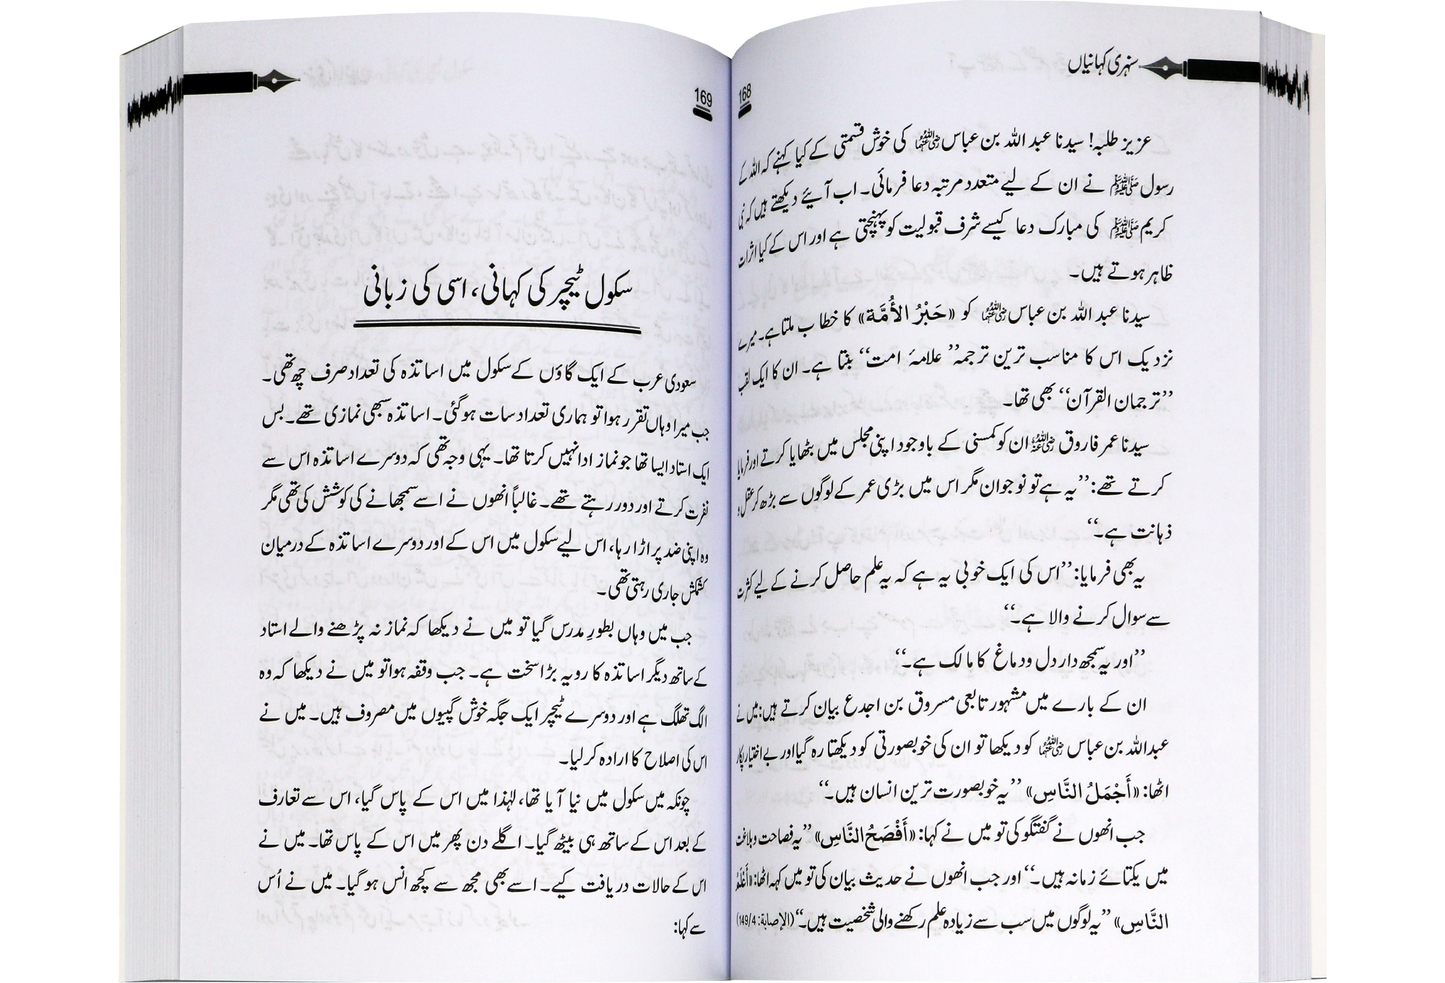 سنہری کہانیاں
168
عزیز طلبہ! سیدنا عبد اللہ بن عباس رضی اللہ عنہما کی خوش قسمتی کے کیا کہنے کہ اللہ کے
رسول ﷺ نے ان کے لیے متعدد مرتبہ دعا فرمائی۔ اب آیئے دیکھتے ہیں کہ نبی
کریم ﷺ کی مبارک دعا کیسے شرف قبولیت کو پہنچتی ہے اور اس کے کیا اثرات
ظاہر ہوتے ہیں۔
سیدنا عبد اللہ بن عباس رضی اللہ عنہما کو «حَبْرُ الأُمَّة» کا خطاب ملتا ہے۔ میرے
نزدیک اس کا مناسب ترین ترجمہ ’’علامۂ امت‘‘ بنتا ہے۔ ان کا ایک لقب
’’ترجمان القرآن‘‘ بھی تھا۔
سیدنا عمر فاروق رضی اللہ عنہ ان کو کمسنی کے باوجود اپنی مجلس میں بٹھایا کرتے اور فرمایا
کرتے تھے: ’’یہ ہے تو نوجوان مگر اس میں بڑی عمر کے لوگوں سے بڑھ کر عقل و
ذہانت ہے۔‘‘
یہ بھی فرمایا: ’’اس کی ایک خوبی یہ ہے کہ یہ علم حاصل کرنے کے لیے کثرت
سے سوال کرنے والا ہے۔‘‘
’’اور یہ سمجھ دار دل و دماغ کا مالک ہے۔‘‘
ان کے بارے میں مشہور تابعی مسروق بن اجدع بیان کرتے ہیں: میں نے
عبداللہ بن عباس رضی اللہ عنہما کو دیکھا تو ان کی خوبصورتی کو دیکھتا رہ گیا اور بے اختیار پکار
اٹھا: «أَجْمَلُ النَّاسِ» ’’یہ خوبصورت ترین انسان ہیں۔‘‘
جب انھوں نے گفتگو کی تو میں نے کہا: «أَفْصَحُ النَّاسِ» ’’یہ فصاحت و بلاغت
میں یکتائے زمانہ ہیں۔‘‘ اور جب انھوں نے حدیث بیان کی تو میں کہہ اٹھا: «أَعْلَمُ
النَّاسِ» ’’یہ لوگوں میں سب سے زیادہ علم رکھنے والی شخصیت ہیں۔‘‘ (الإصابة: 149/4)
169
سکول ٹیچر کی کہانی، اسی کی زبانی
سعودی عرب کے ایک گاؤں کے سکول میں اساتذہ کی تعداد صرف چھ تھی۔
جب میرا وہاں تقرر ہوا تو ہماری تعداد سات ہو گئی۔ اساتذہ سبھی نمازی تھے۔ بس
ایک استاد ایسا تھا جو نماز ادا نہیں کرتا تھا۔ یہی وجہ تھی کہ دوسرے اساتذہ اس سے
نفرت کرتے اور دور رہتے تھے۔ غالباً انھوں نے اسے سمجھانے کی کوشش کی تھی مگر
وہ اپنی ضد پر اڑا رہا، اس لیے سکول میں اس کے اور دوسرے اساتذہ کے درمیان
کشمکش جاری رہتی تھی۔
جب میں وہاں بطورِ مدرس گیا تو میں نے دیکھا کہ نماز نہ پڑھنے والے استاد
کے ساتھ دیگر اساتذہ کا رویہ بڑا سخت ہے۔ جب وقفہ ہوا تو میں نے دیکھا کہ وہ
الگ تھلگ ہے اور دوسرے ٹیچر ایک جگہ خوش گپیوں میں مصروف ہیں۔ میں نے
اس کی اصلاح کا ارادہ کر لیا۔
چونکہ میں سکول میں نیا آیا تھا، لہٰذا میں اس کے پاس گیا، اس سے تعارف
کے بعد اس کے ساتھ ہی بیٹھ گیا۔ اگلے دن پھر میں اس کے پاس تھا۔ میں نے
اس کے حالات دریافت کیے۔ اسے بھی مجھ سے کچھ انس ہو گیا۔ میں نے اُس
سے کہا: